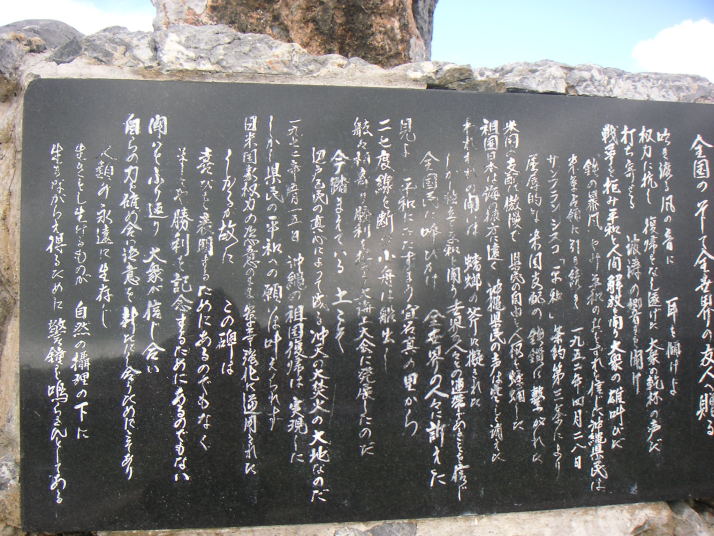 全国の そして全世界の友人へ贈る
吹き渡る風の音に 耳を傾けよ
権力に抗し 復帰をなし遂げた 大衆の乾杯の声だ
打ち寄せる 波濤の響きを聞け
戦争を拒み平和と人間解放を闘う大衆の雄叫びだ
鉄の暴風 やみ平和の訪れを信じた沖縄県民は
米軍占領に引き続き 一九五二年四月二八日
サンフランシスコ「平和」条約第三条により
屈辱的な米国支配の鉄鎖に繋がれた
米国の支配は傲慢で 県民の自由と人権を蹂躙した
祖国日本は海の彼方に遠く 沖縄県民の声は空しく消えた
われわれの闘いは 蟷螂の斧に擬された
しかし独立と平和を闘う世界の人々との連帯あることを信じ
全国民に呼びかけ 全世界の人々に訴えた
見よ 平和にたたずまう宜名真の里から
二七度線を断つ小舟は船出し
舷々相寄り勝利を誓う大海上大会に発展したのだ
今踏まえている 土こそ
辺戸区民の真心によって成る冲天の大焚火の大地なのだ
一九七二年五月一五日 沖縄の祖国復帰は実現した
しかし県民の平和への願いは叶えられず
日米国家権力の恣意のまま軍事強化に逆用された
しかるが故に この碑は
喜びを表明するためにあるのでもなく
ましてや勝利を記念するためにあるのでもない
闘いをふり返り 大衆が信じ合い
自らの力を確め合い決意を新たにし合うためにこそあり
人類が永遠に生存し
生きとし生けるものが 自然の摂理の下に
生きながらえ得るために 警鐘を鳴らさんとしてある